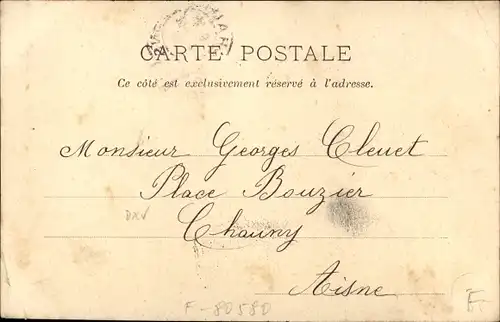 CARTE POSTALE
Ce côté est exclusivement réservé à l'adresse.
Monsieur Georges Cleuet
Place Bouzier
DXV
Chauny
Aisne
F-80580
E